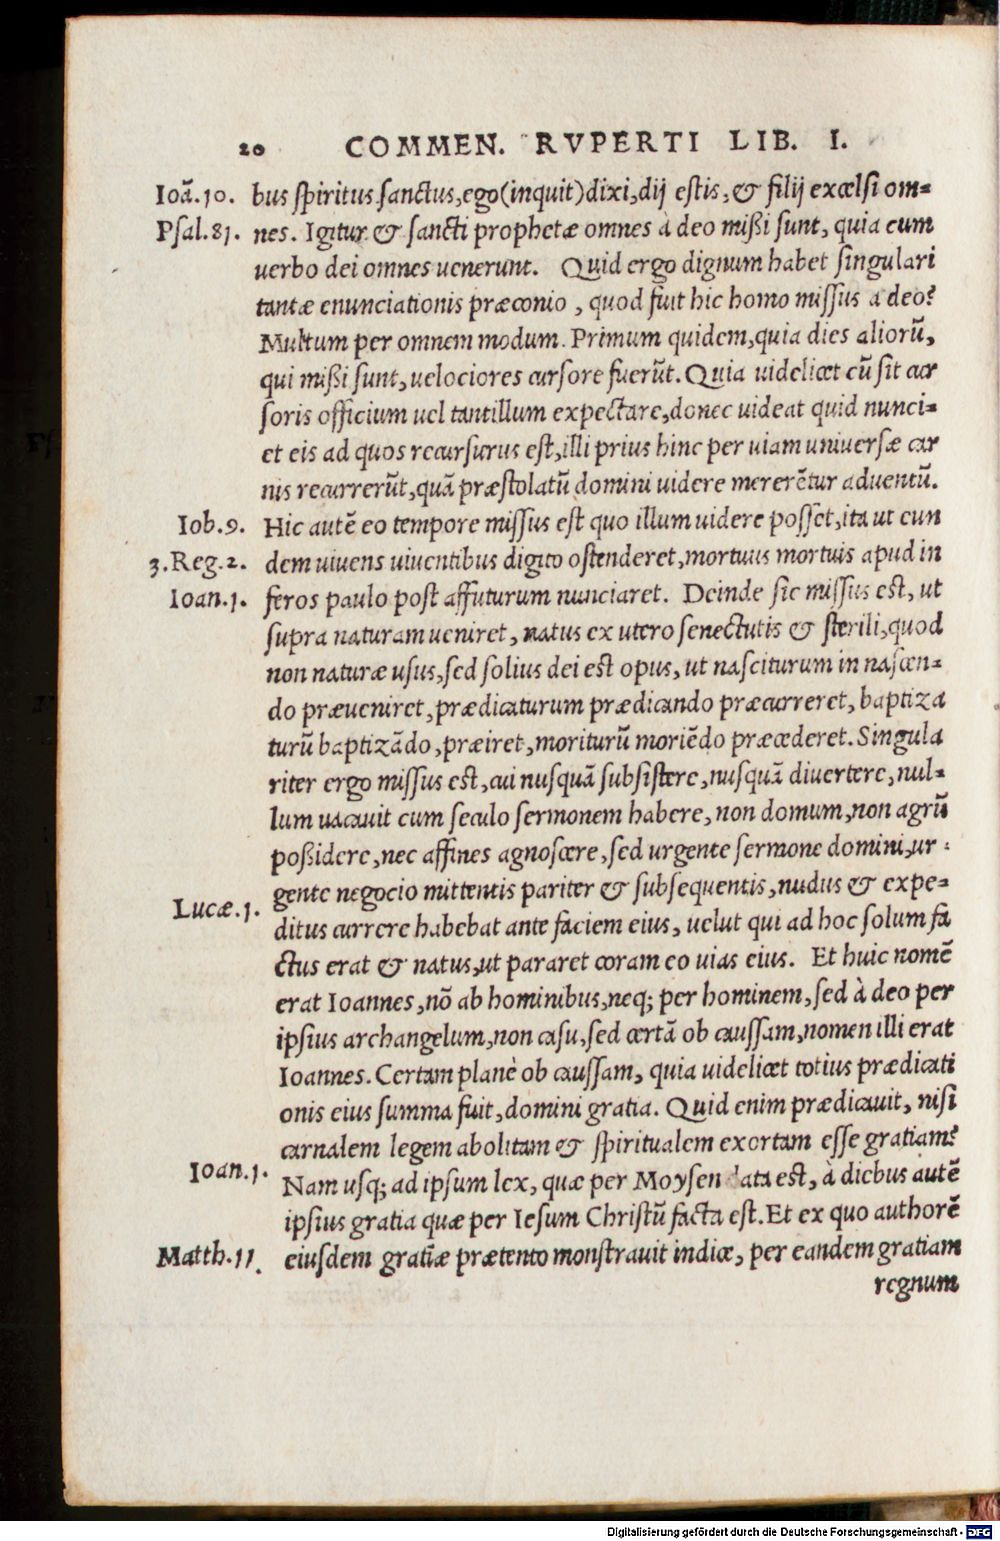 20 COMMEN. RVPERTI LIB. I.
Ioã.10. bus spiritus sanctus, ego (inquit) dixi, dij estis, & filij excelsi om=
Psal.81. nes. Igitur & sancti prophetæ omnes à deo mißi sunt, quia cum
uerbo dei omnes uenerunt. Quid ergo dignum habet singulari
tantæ enunciationis præconio, quod fuit hic homo missus a deo?
Multum per omnem modum. Primum quidem, quia dies aliorũ,
qui mißi sunt, uelociores cursore fuerũt. Quia uidelicet cũ sit cur
soris officium uel tantillum expectare, donec uideat quid nunci=
et eis ad quos recursurus est, illi prius hinc per uiam uniuersæ car
nis recurrerũt, quã præstolatũ domini uidere mererẽtur aduentũ.
Iob.9. Hic autẽ eo tempore missus est quo illum uidere posset, ita ut eun
3.Reg.2. dem uiuens uiuentibus digito ostenderet, mortuus mortuis apud in
Ioan.1. feros paulo post affuturum nunciaret. Deinde sic missus est, ut
supra naturam ueniret, natus ex utero senectutis & sterili, quod
non naturæ usus, sed solius dei est opus, ut nasciturum in nascen=
do præueniret, prædicaturum prædicando præcurreret, baptiza
turũ baptizãdo, præiret, moriturũ moriẽdo præcederet. Singula
riter ergo missus est, cui nusquã subsistere, nusquã diuertere, nul=
lum uacauit cum seculo sermonem habere, non domum, non agrũ
poßidere, nec affines agnoscere, sed urgente sermone domini, ur=
gente negocio mittentis pariter & subsequentis, nudus & expe=
Lucæ.1. ditus currere habebat ante faciem eius, uelut qui ad hoc solum fa
ctus erat & natus, ut pararet coram eo uias eius. Et huic nomẽ
erat Ioannes, nõ ab hominibus, neq; per hominem, sed à deo per
ipsius archangelum, non casu, sed certã ob caussam, nomen illi erat
Ioannes. Certam planè ob caussam, quia uidelicet totius prædicati
onis eius summa fuit, domini gratia. Quid enim prædicauit, nisi
carnalem legem abolitam & spiritualem exortam esse gratiam?
Ioan.1. Nam usq; ad ipsum lex, quæ per Moysen data est, à diebus autẽ
ipsius gratia quæ per Iesum Christũ facta est. Et ex quo authorẽ
Matth.11. eiusdem gratiæ prætento monstrauit indice, per eandem gratiam
regnum
Digitalisierung gefördert durch die Deutsche Forschungsgemeinschaft - DFG